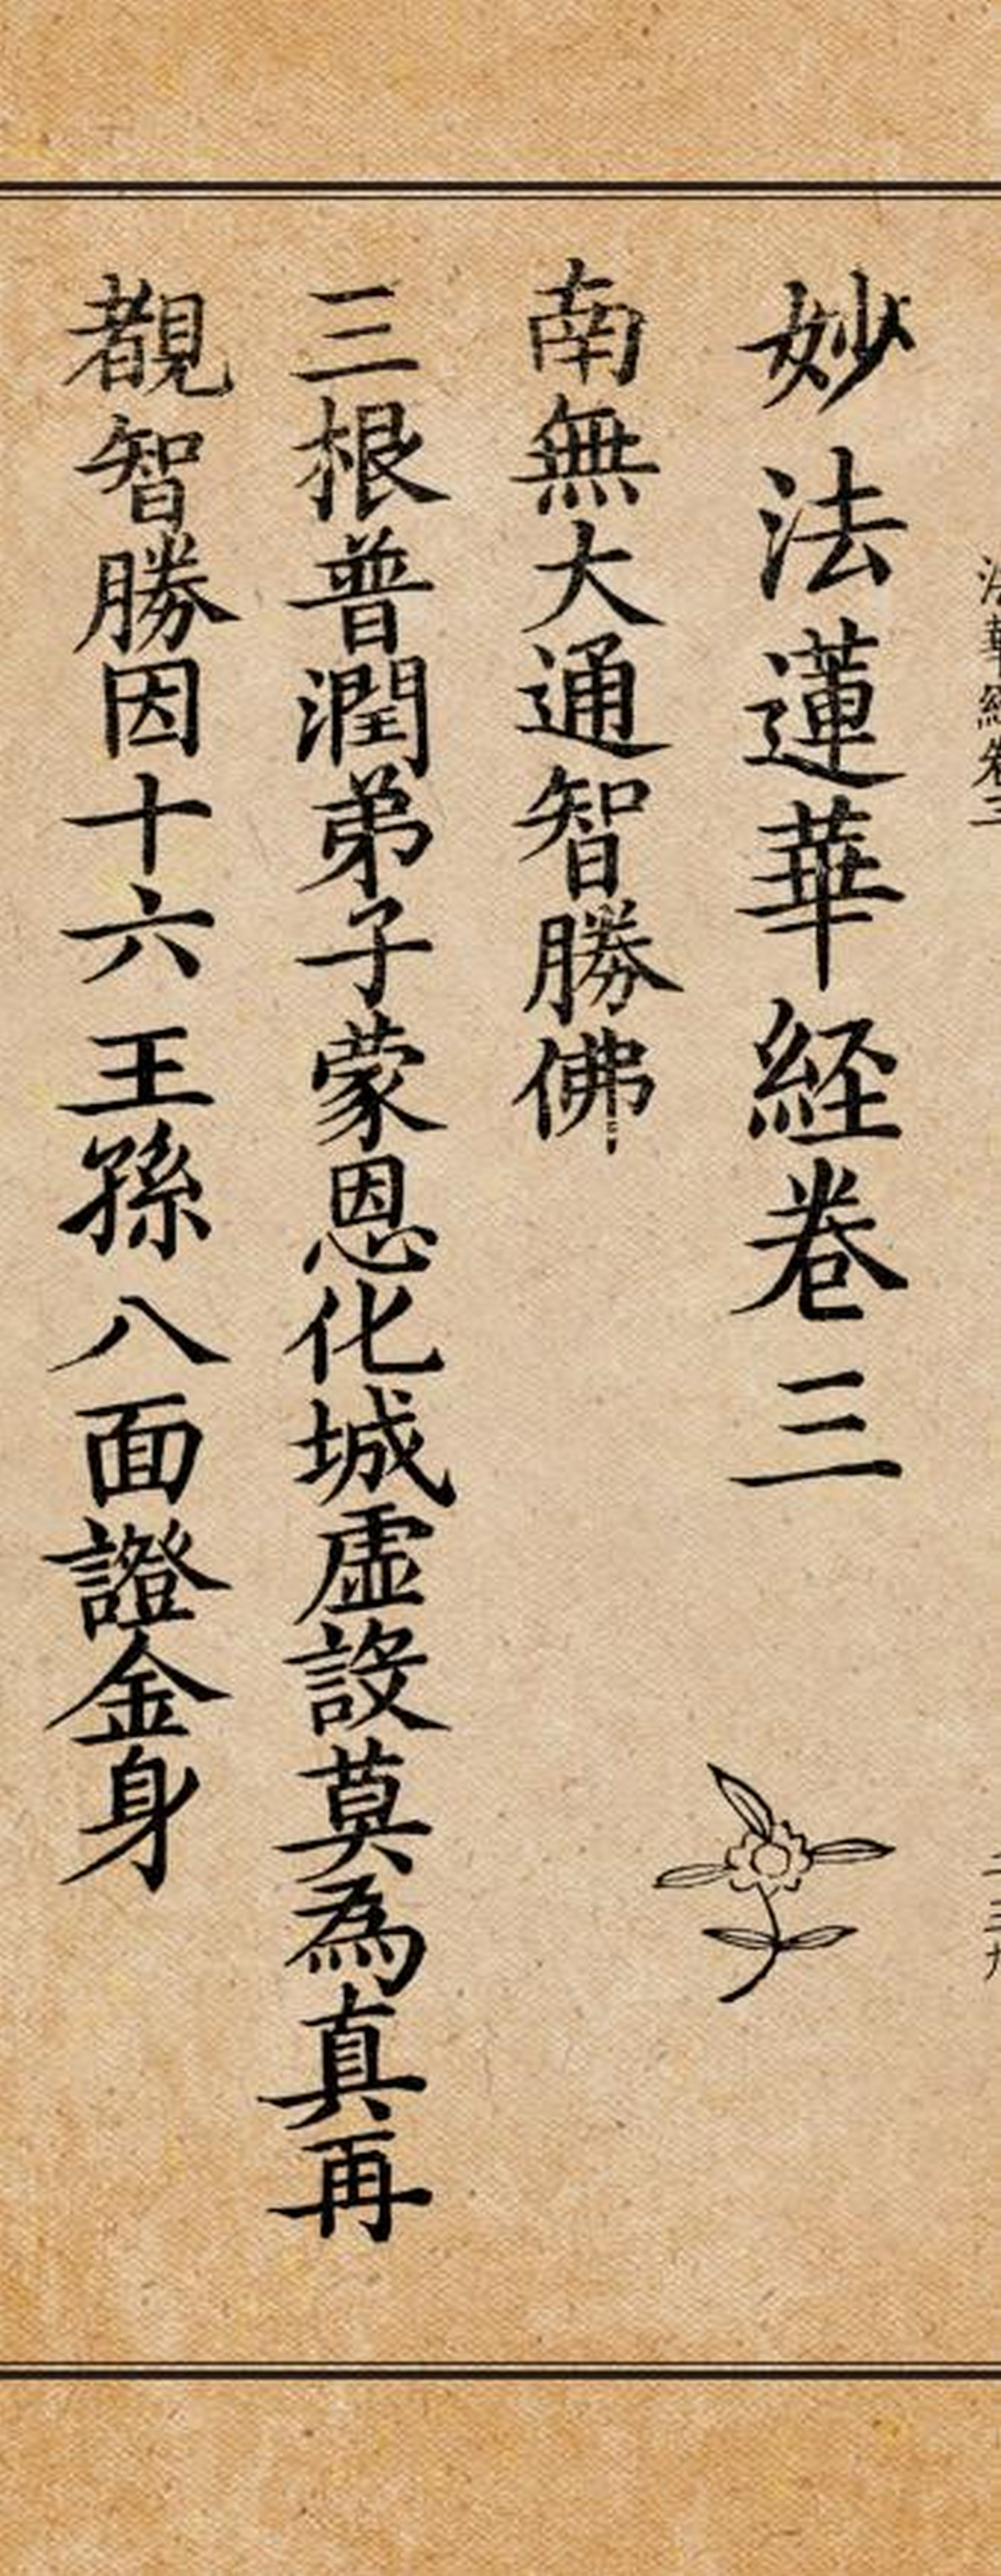 法華經卷三
妙法蓮華経卷三
南無大通智勝佛
三根普潤弟子蒙恩化城虚設莫為真再
覩智勝因十六王孫八面證金身